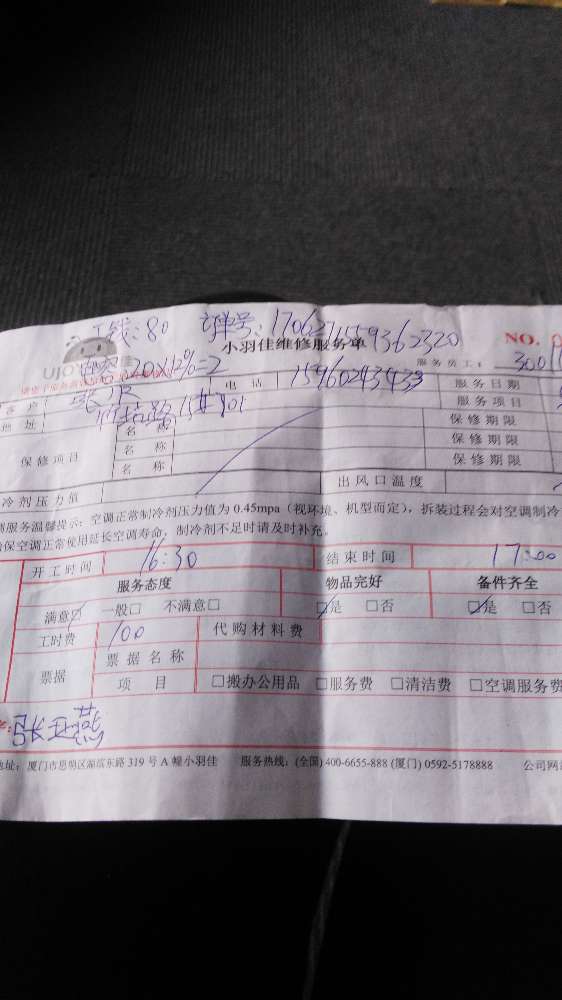 工钱:80 订单号:1706271559362320
UJO
小羽佳维修服务单 NO.
20×12%=2 服务员工: 3001
客户 电话 15960243433 服务日期
地址 服务项目
保修项目 名称 保修期限
名称 保修期限
名称 保修期限
冷剂压力值 出风口温度
服务温馨提示:空调正常制冷剂压力值为0.45mpa(视环境、机型而定),拆装过程会对空调制冷
保空调正常使用延长空调寿命,制冷剂不足时请及时补充。
开工时间 16:30 结束时间 17:00
服务态度 物品完好 备件齐全
满意☑ 一般□ 不满意□ ☑是 □否 ☑是 □否
工时费 100 代购材料费
票据 票据名称
项目 □搬办公用品 □服务费 □清洁费 □空调服务费
地址:厦门市思明区湖滨东路319号A幢小羽佳 服务热线:(全国)400-6655-888 (厦门) 0592-5178888 公司网